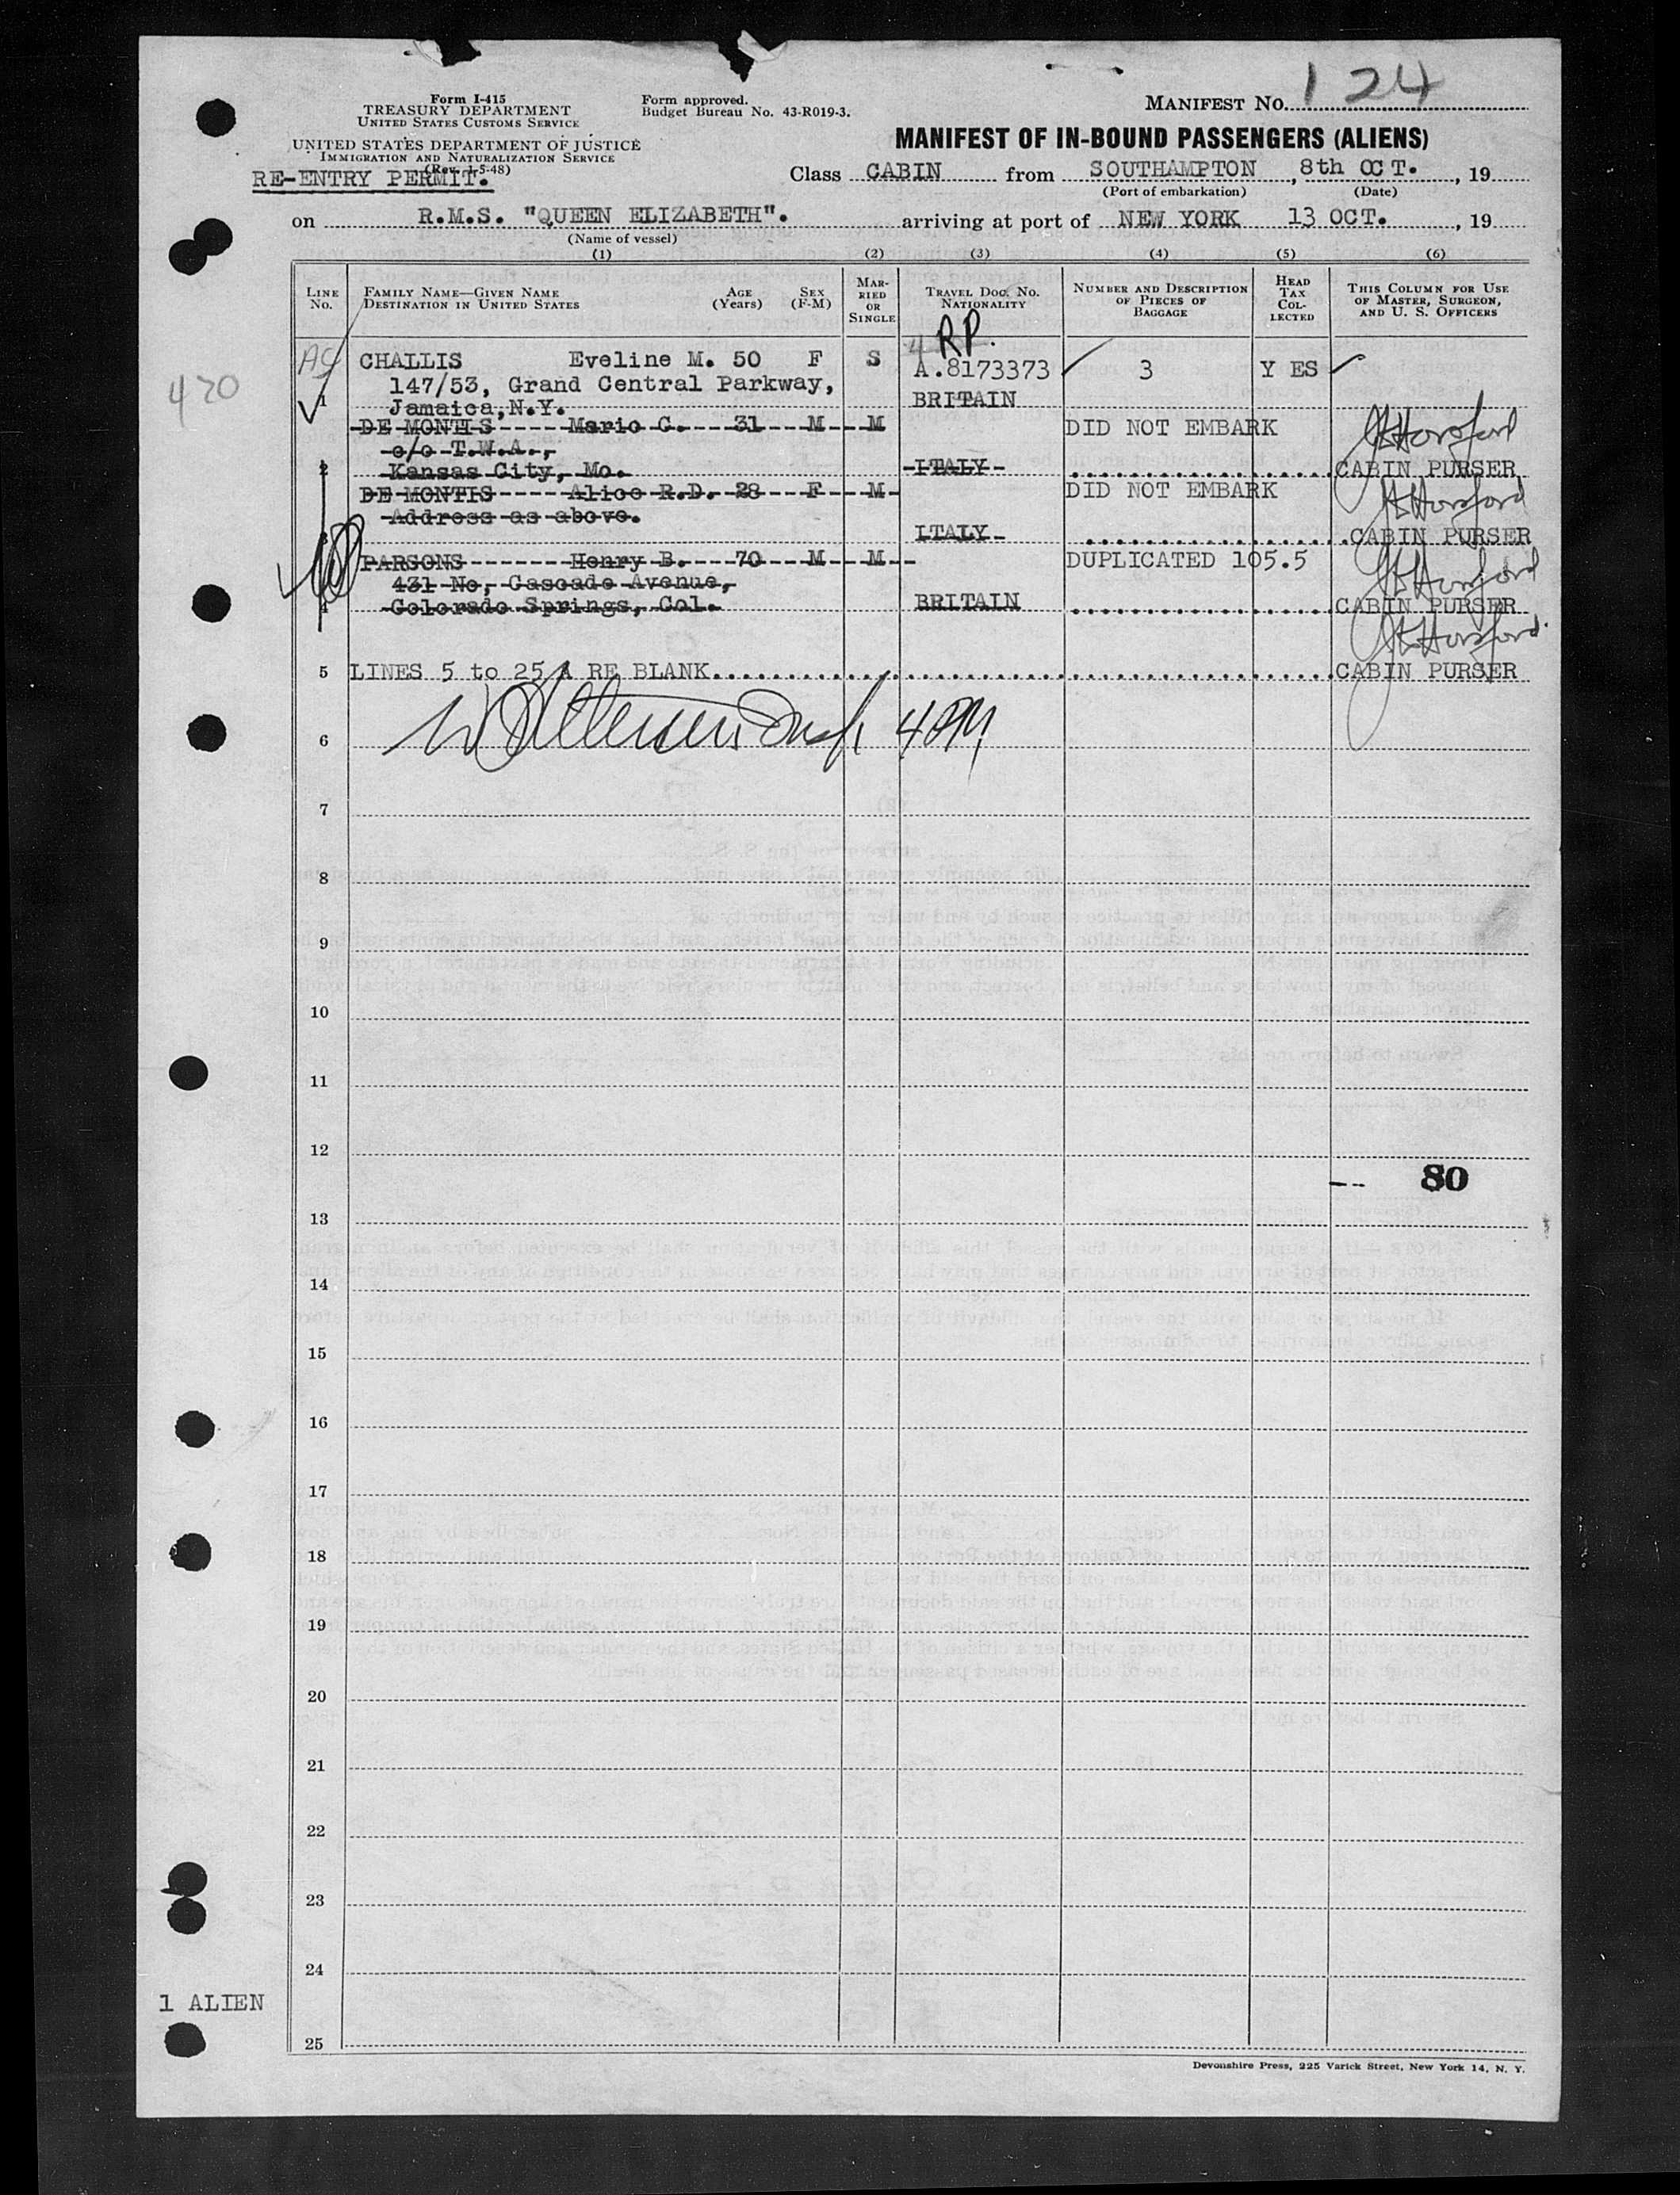 Form I-415
TREASURY DEPARTMENT
UNITED STATES CUSTOMS SERVICE
UNITED STATES DEPARTMENT OF JUSTICE
IMMIGRATION AND NATURALIZATION SERVICE
(Rev. 1-5-48)
RE-ENTRY PERMIT.
Form approved.
Budget Bureau No. 43-R019-3.
MANIFEST NO. 124
MANIFEST OF IN-BOUND PASSENGERS (ALIENS)
Class CABIN from SOUTHAMPTON, 8th OCT., 19
(Port of embarkation) (Date)
on R.M.S. "QUEEN ELIZABETH". arriving at port of NEW YORK 13 OCT., 19
(Name of vessel)
(1) (2) (3) (4) (5) (6)
LINE No. FAMILY NAME—GIVEN NAME DESTINATION IN UNITED STATES AGE (Years) SEX (F-M) MARRIED OR SINGLE TRAVEL DOC. NO. NATIONALITY NUMBER AND DESCRIPTION OF PIECES OF BAGGAGE HEAD TAX COLLECTED THIS COLUMN FOR USE OF MASTER, SURGEON, AND U. S. OFFICERS
RP.
420
1 CHALLIS Eveline M. 50 F S A.8173373 3 Y ES
147/53, Grand Central Parkway,
Jamaica, N.Y. BRITAIN
DE MONTIS Mario C. 31 M M DID NOT EMBARK
c/o T.W.A.,
2 Kansas City, Mo. ITALY CABIN PURSER
DE MONTIS Alice R.D. 28 F M DID NOT EMBARK
Address as above.
3 ITALY CABIN PURSER
PARSONS Henry B. 70 M M DUPLICATED 105.5
431 No, Cascade Avenue,
4 Colorado Springs, Col. BRITAIN CABIN PURSER
5 LINES 5 to 25 A RE BLANK CABIN PURSER
6
7
8
9
10
11
12
80
13
14
15
16
17
18
19
20
21
22
23
24
1 ALIEN
25
Devonshire Press, 225 Varick Street, New York 14, N. Y.